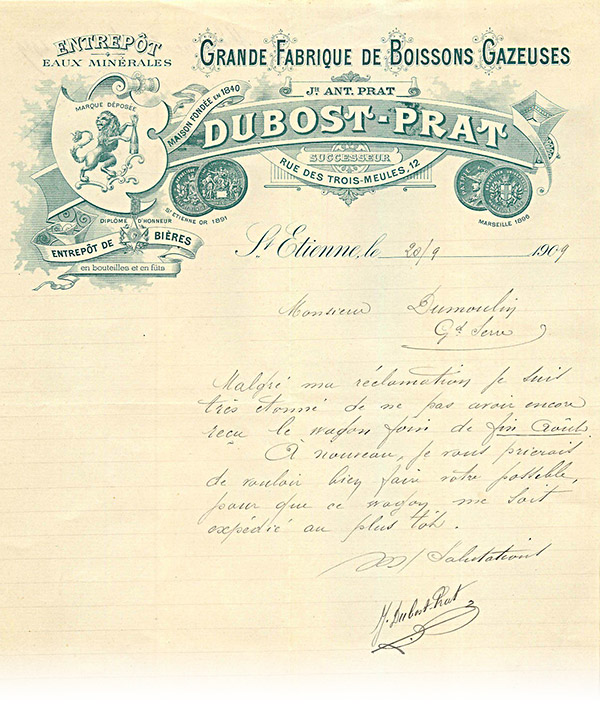 ENTREPÔT
EAUX MINÉRALES
GRANDE FABRIQUE DE BOISSONS GAZEUSES
MARQUE DÉPOSÉE
MAISON FONDÉE EN 1840
JH ANT. PRAT
DUBOST-PRAT
SUCCESSEUR
RUE DES TROIS-MEULES, 12
ST ETIENNE OR 1891
MARSEILLE 1896
DIPLÔME D'HONNEUR
ENTREPÔT DE BIÈRES
en bouteilles et en fûts
St Etienne, le 20/9 1909
Monsieur Dumoulin
Gd Serre
Malgré ma réclamation je suis
très etonné de ne pas avoir encore
reçu le wagon foin de fin Août.
A nouveau, je vous prierais
de vouloir bien faire votre possible,
pour que ce wagon me soit
expédié au plus tôt.
Salutations
Dubost-Prat